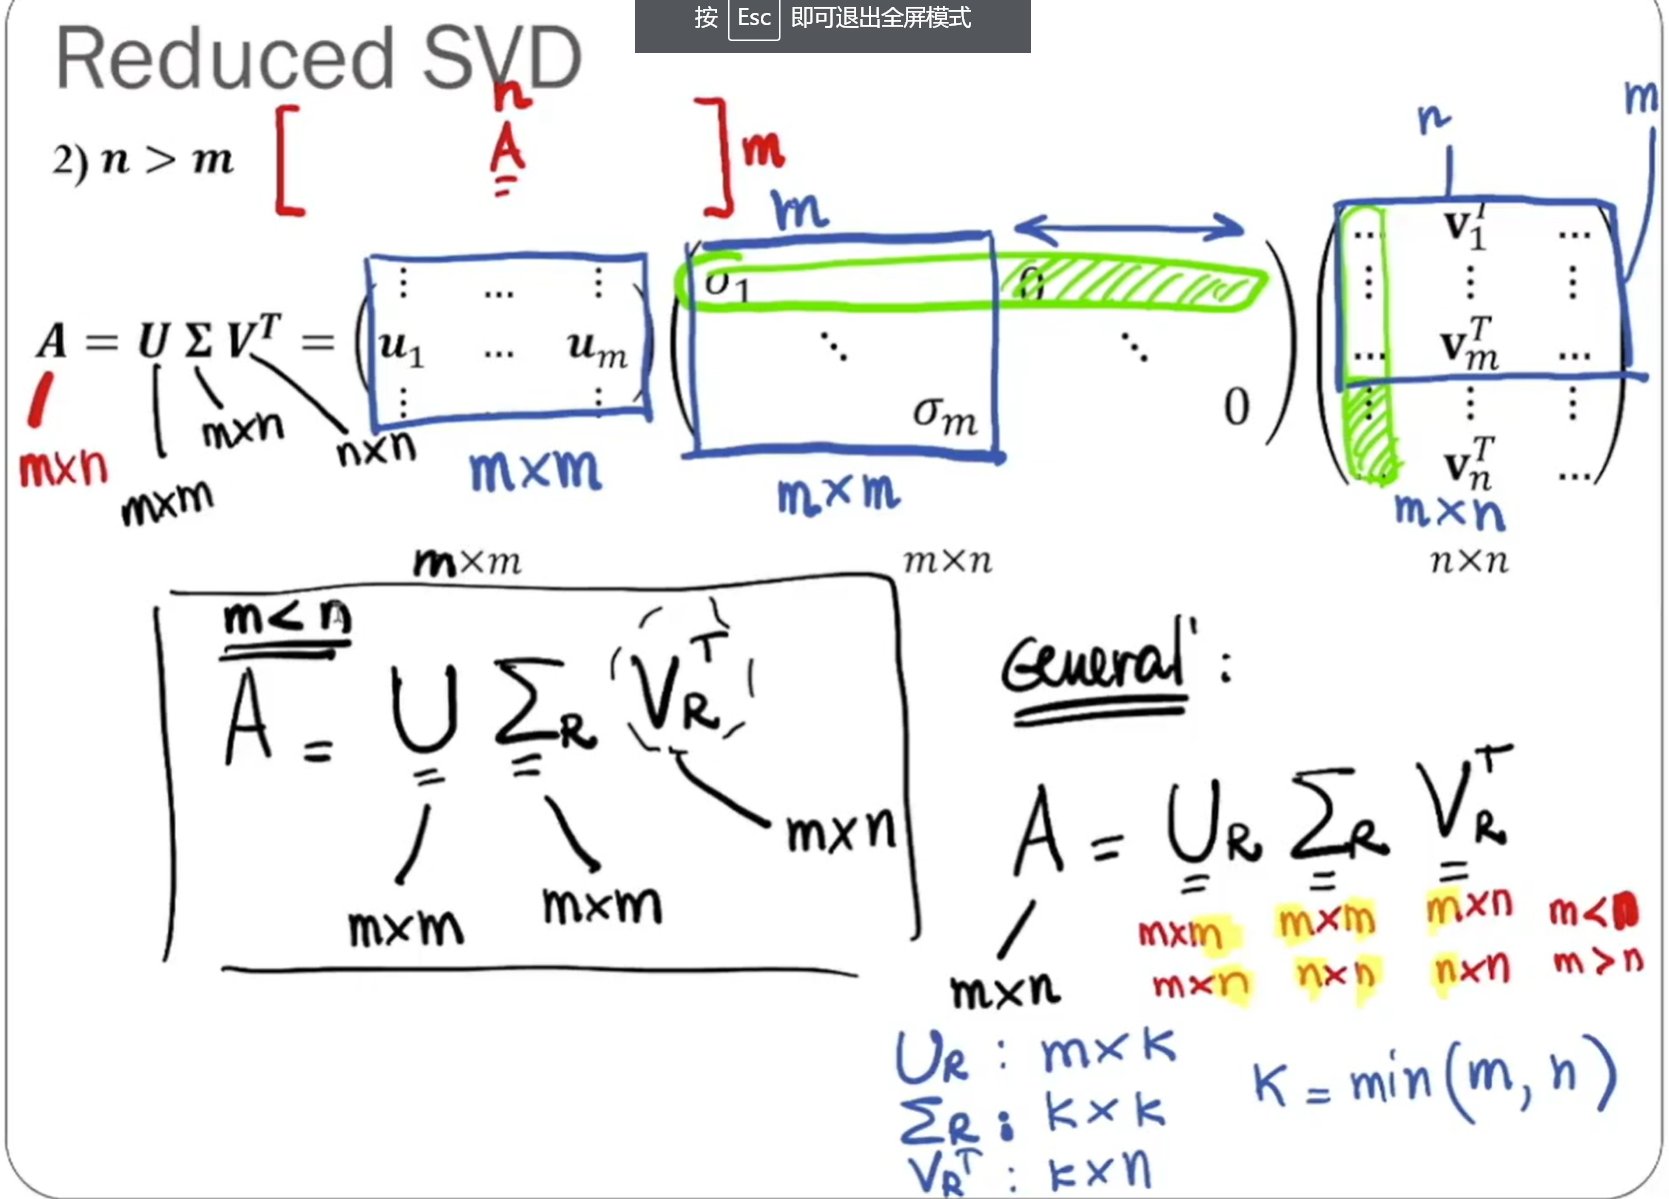 按 Esc 即可退出全屏模式
Reduced SVD
n
2) n > m [ A ] m
m
n
m
A = U Σ V^T =
⋮ ... ⋮
u_1 ... u_m
⋮ ⋮
σ_1 0
⋱ ⋱
σ_m 0
... v_1^T ...
⋮ ⋮ ⋮
... v_m^T ...
⋮ ⋮ ⋮
v_n^T ...
m×n
m×m
m×n
n×n
m×m
m×m
m×n
m×m
m×n
n×n
m < n
A = U Σ_R V_R^T
m×m
m×m
m×n
General :
A = U_R Σ_R V_R^T
m×n
m×m m×m m×n m < n
m×n n×n n×n m > n
U_R : m×k
Σ_R : k×k
V_R^T : k×n
K = min(m, n)